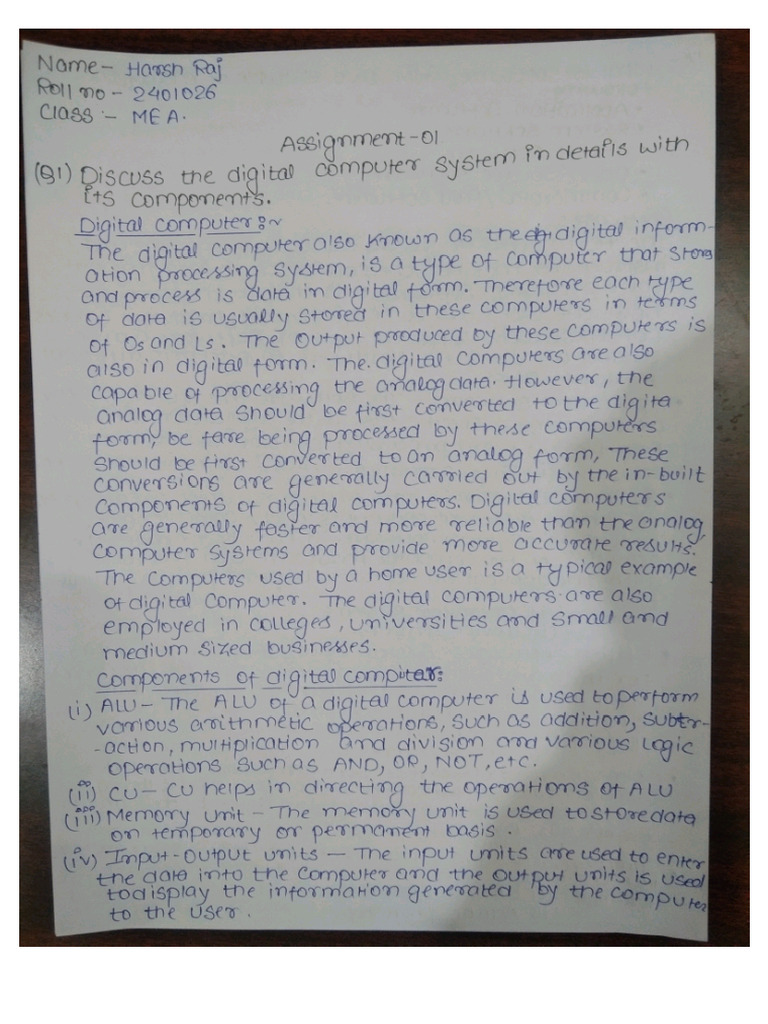 Name- Harsh Raj
Roll no - 2401026
Class :- MEA.
Assignment-01
(Q1) Discuss the digital computer system in details with
its components.
Digital computer :~
The digital computer also known as the digital inform-
ation processing system, is a type of computer that stores
and process is data in digital form. Therefore each type
of data is usually stored in these computers in terms
of 0s and Ls. The output produced by these computers is
also in digital form. The digital computers are also
capable of processing the analog data. However, the
analog data should be first converted to the digita
form, be fare being processed by these computers
should be first converted to an analog form, These
conversions are generally carried out by the in-built
components of digital computers. Digital computers
are generally faster and more reliable than the analog
computer systems and provide more accurate results.
The computers used by a home user is a typical example
of digital computer. The digital computers are also
employed in colleges, universities and small and
medium sized businesses.
Components of digital computer:
(i) ALU - The ALU of a digital computer is used to perform
various arithmetic operations, such as addition, subtr-
-action, multiplication and division and various logic
operations such as AND, OR, NOT, etc.
(ii) CU - CU helps in directing the operations of ALU
(iii) Memory unit - The memory unit is used to store data
on temporary or permanent basis.
(iv) Input-output units - The input units are used to enter
the data into the computer and the output units is used
to display the information generated by the computer
to the user.